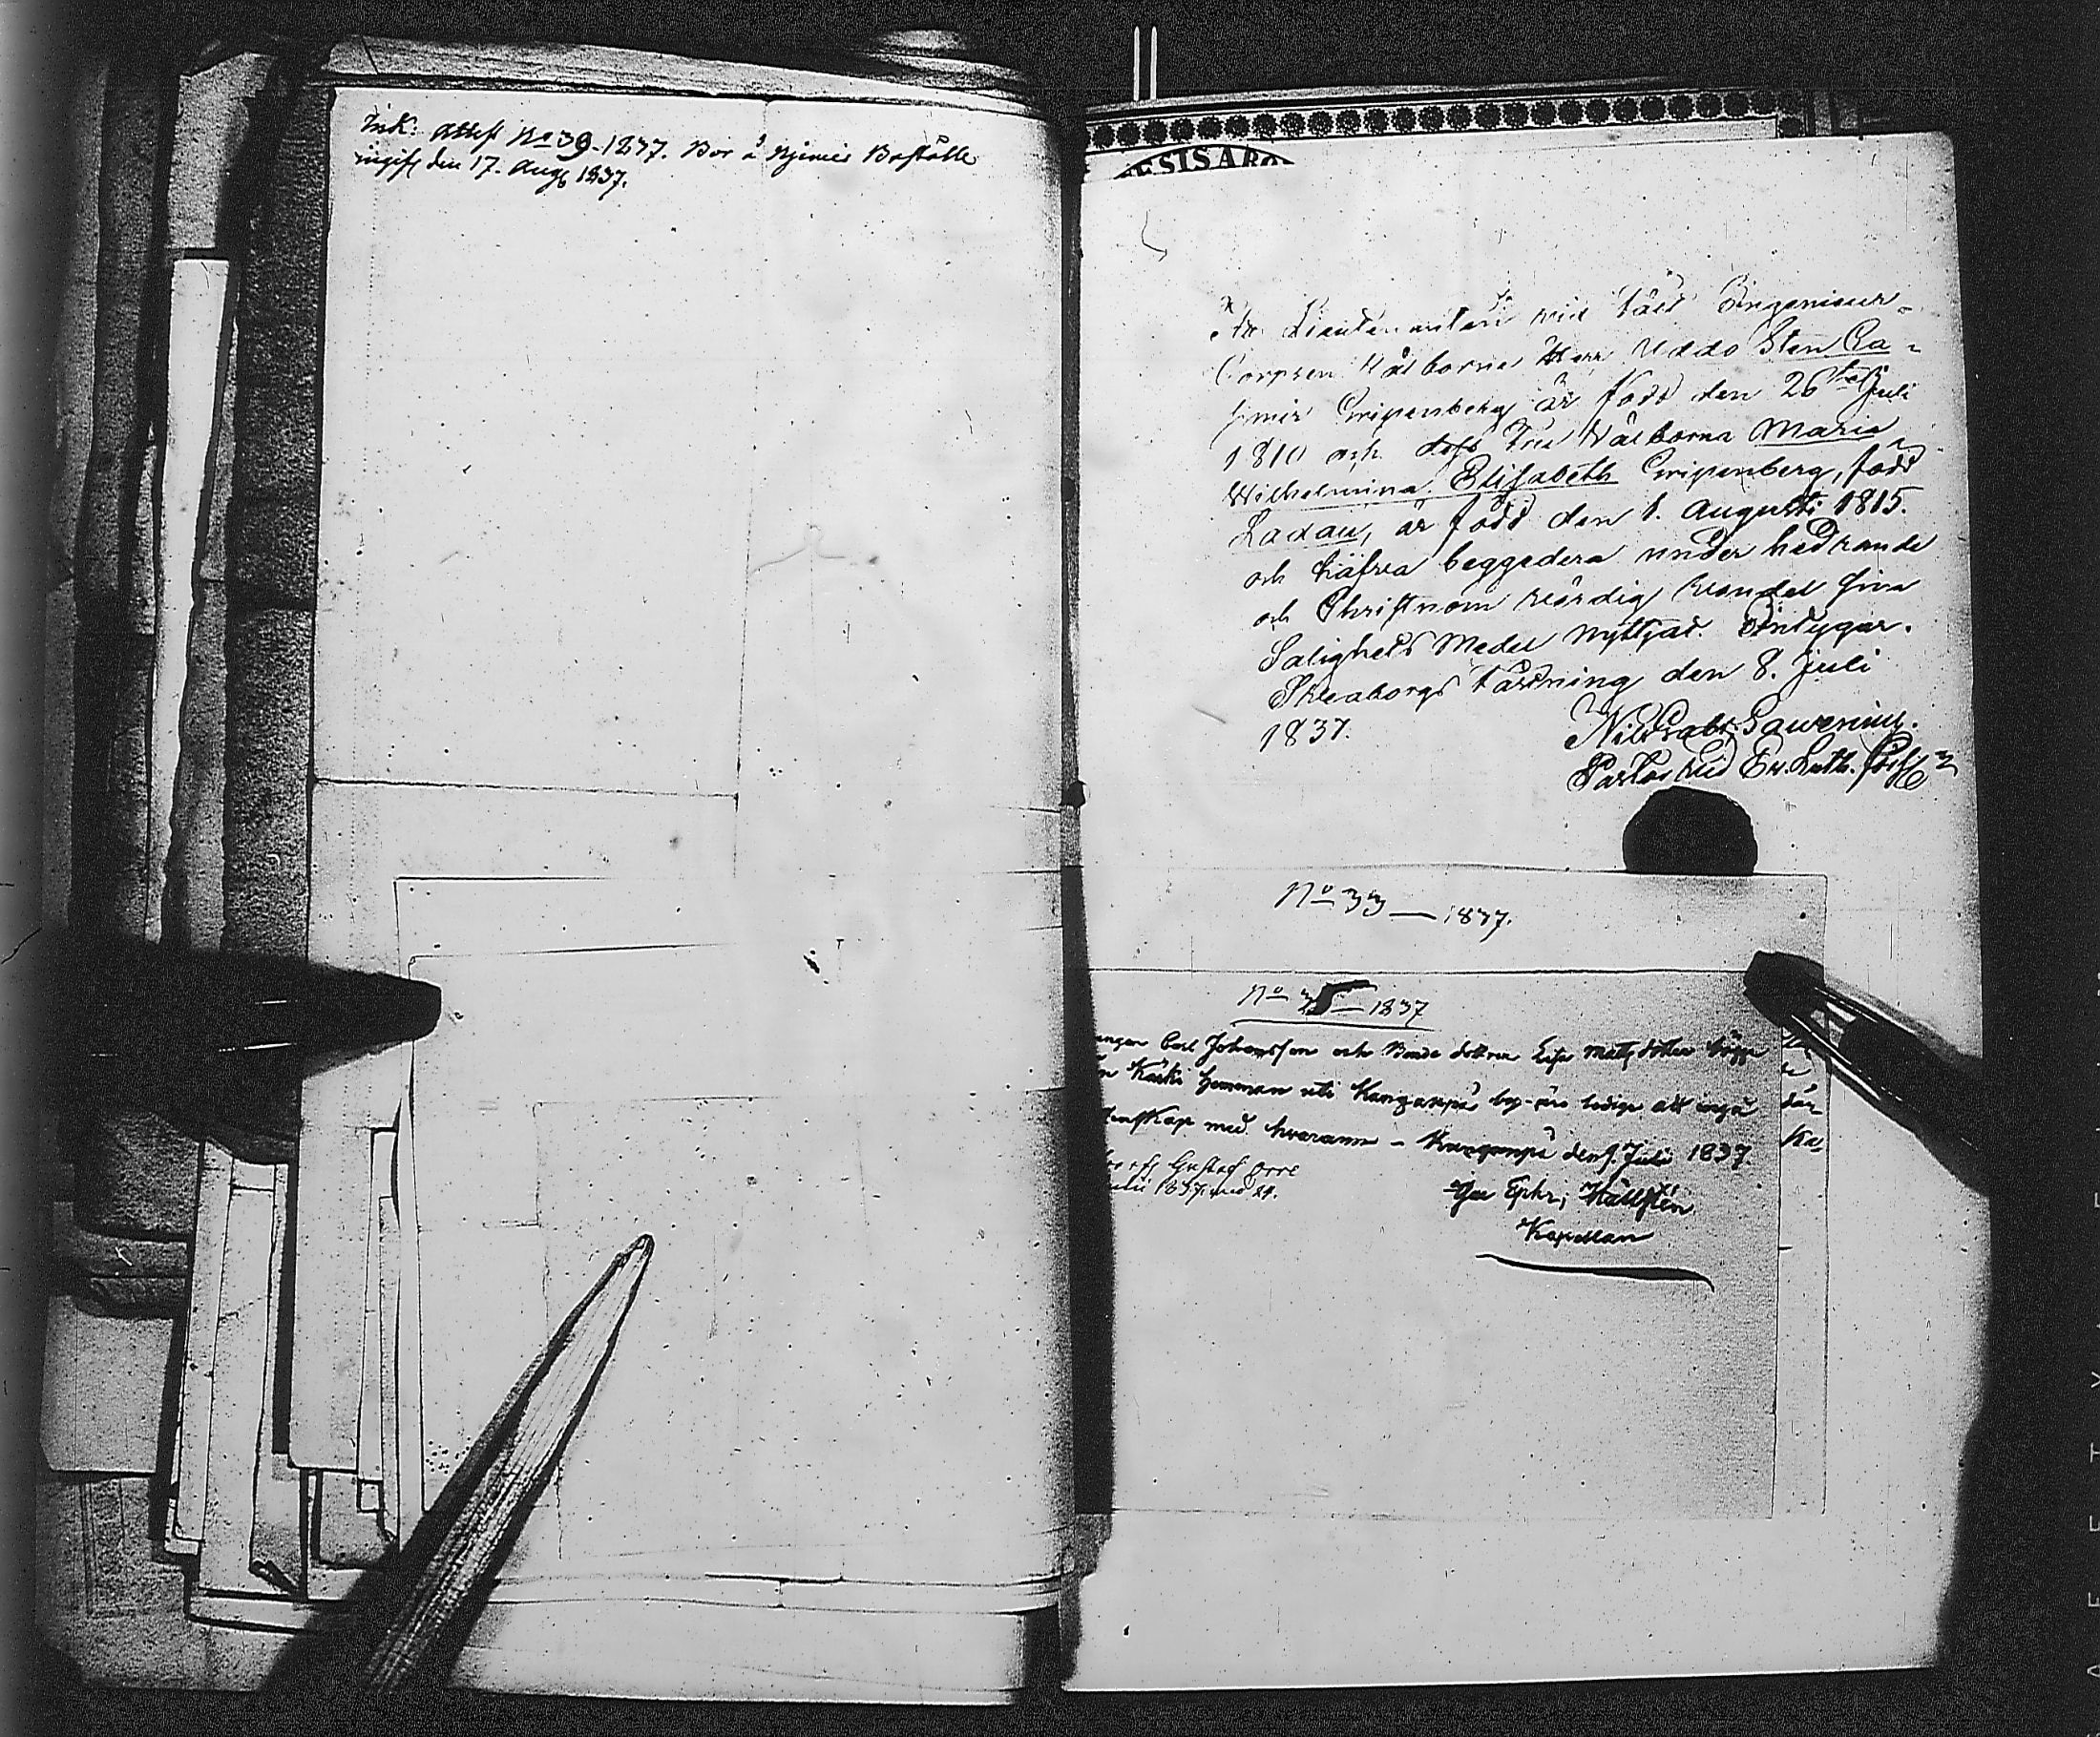 Ink: Attest No 39-1837. Bor å Boställe
ingift den 17. Aug 1837.
ESIS ABO
At Lieutenanten vid Ingenieur-
Corpsen Välborne Herr Uddo Sten Ca-
simir Gripenberg är född den 26te Juli
1810 och dess Fru Välborna Maria
Wilhelmina Elisabeth Gripenberg, född
Ladau, är född den 1. Augusti 1815.
och häfva beggedera under hedrande
och Christnom värdig vandel sina
Salighets Medel nyttjat. Intygar.
Sveaborgs Fästning den 8. Juli
1837.
Nils Lawenius.
Pastor vid Ev. Luth.
No 33 — 1837.
No 35 — 1837
Carl Johansson och Bonde dottren Lisa Matts dotter
Kärki hemman uti Kangasnpä by äro lediga att ingå
med hvarann - den 9. Juli 1837.
Gustaf Orre
1837
Ephr. Hällsten
Kapellan